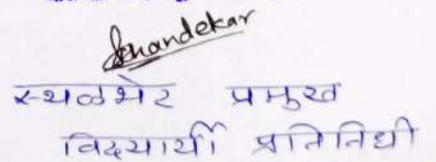 Khandekar
स्थळभेट प्रमुख
विद्यार्थी प्रतिनिधी